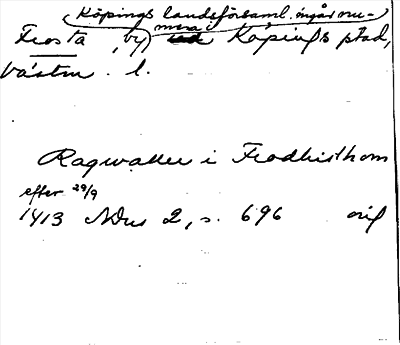 Köpings landsförsaml. ingår nu-
mera i
Frosta, by, Köpings stad,
Västm. l.
Ragwaller i Frodhisthom
efter 29/9
1413 NDus 2, s. 696 orig